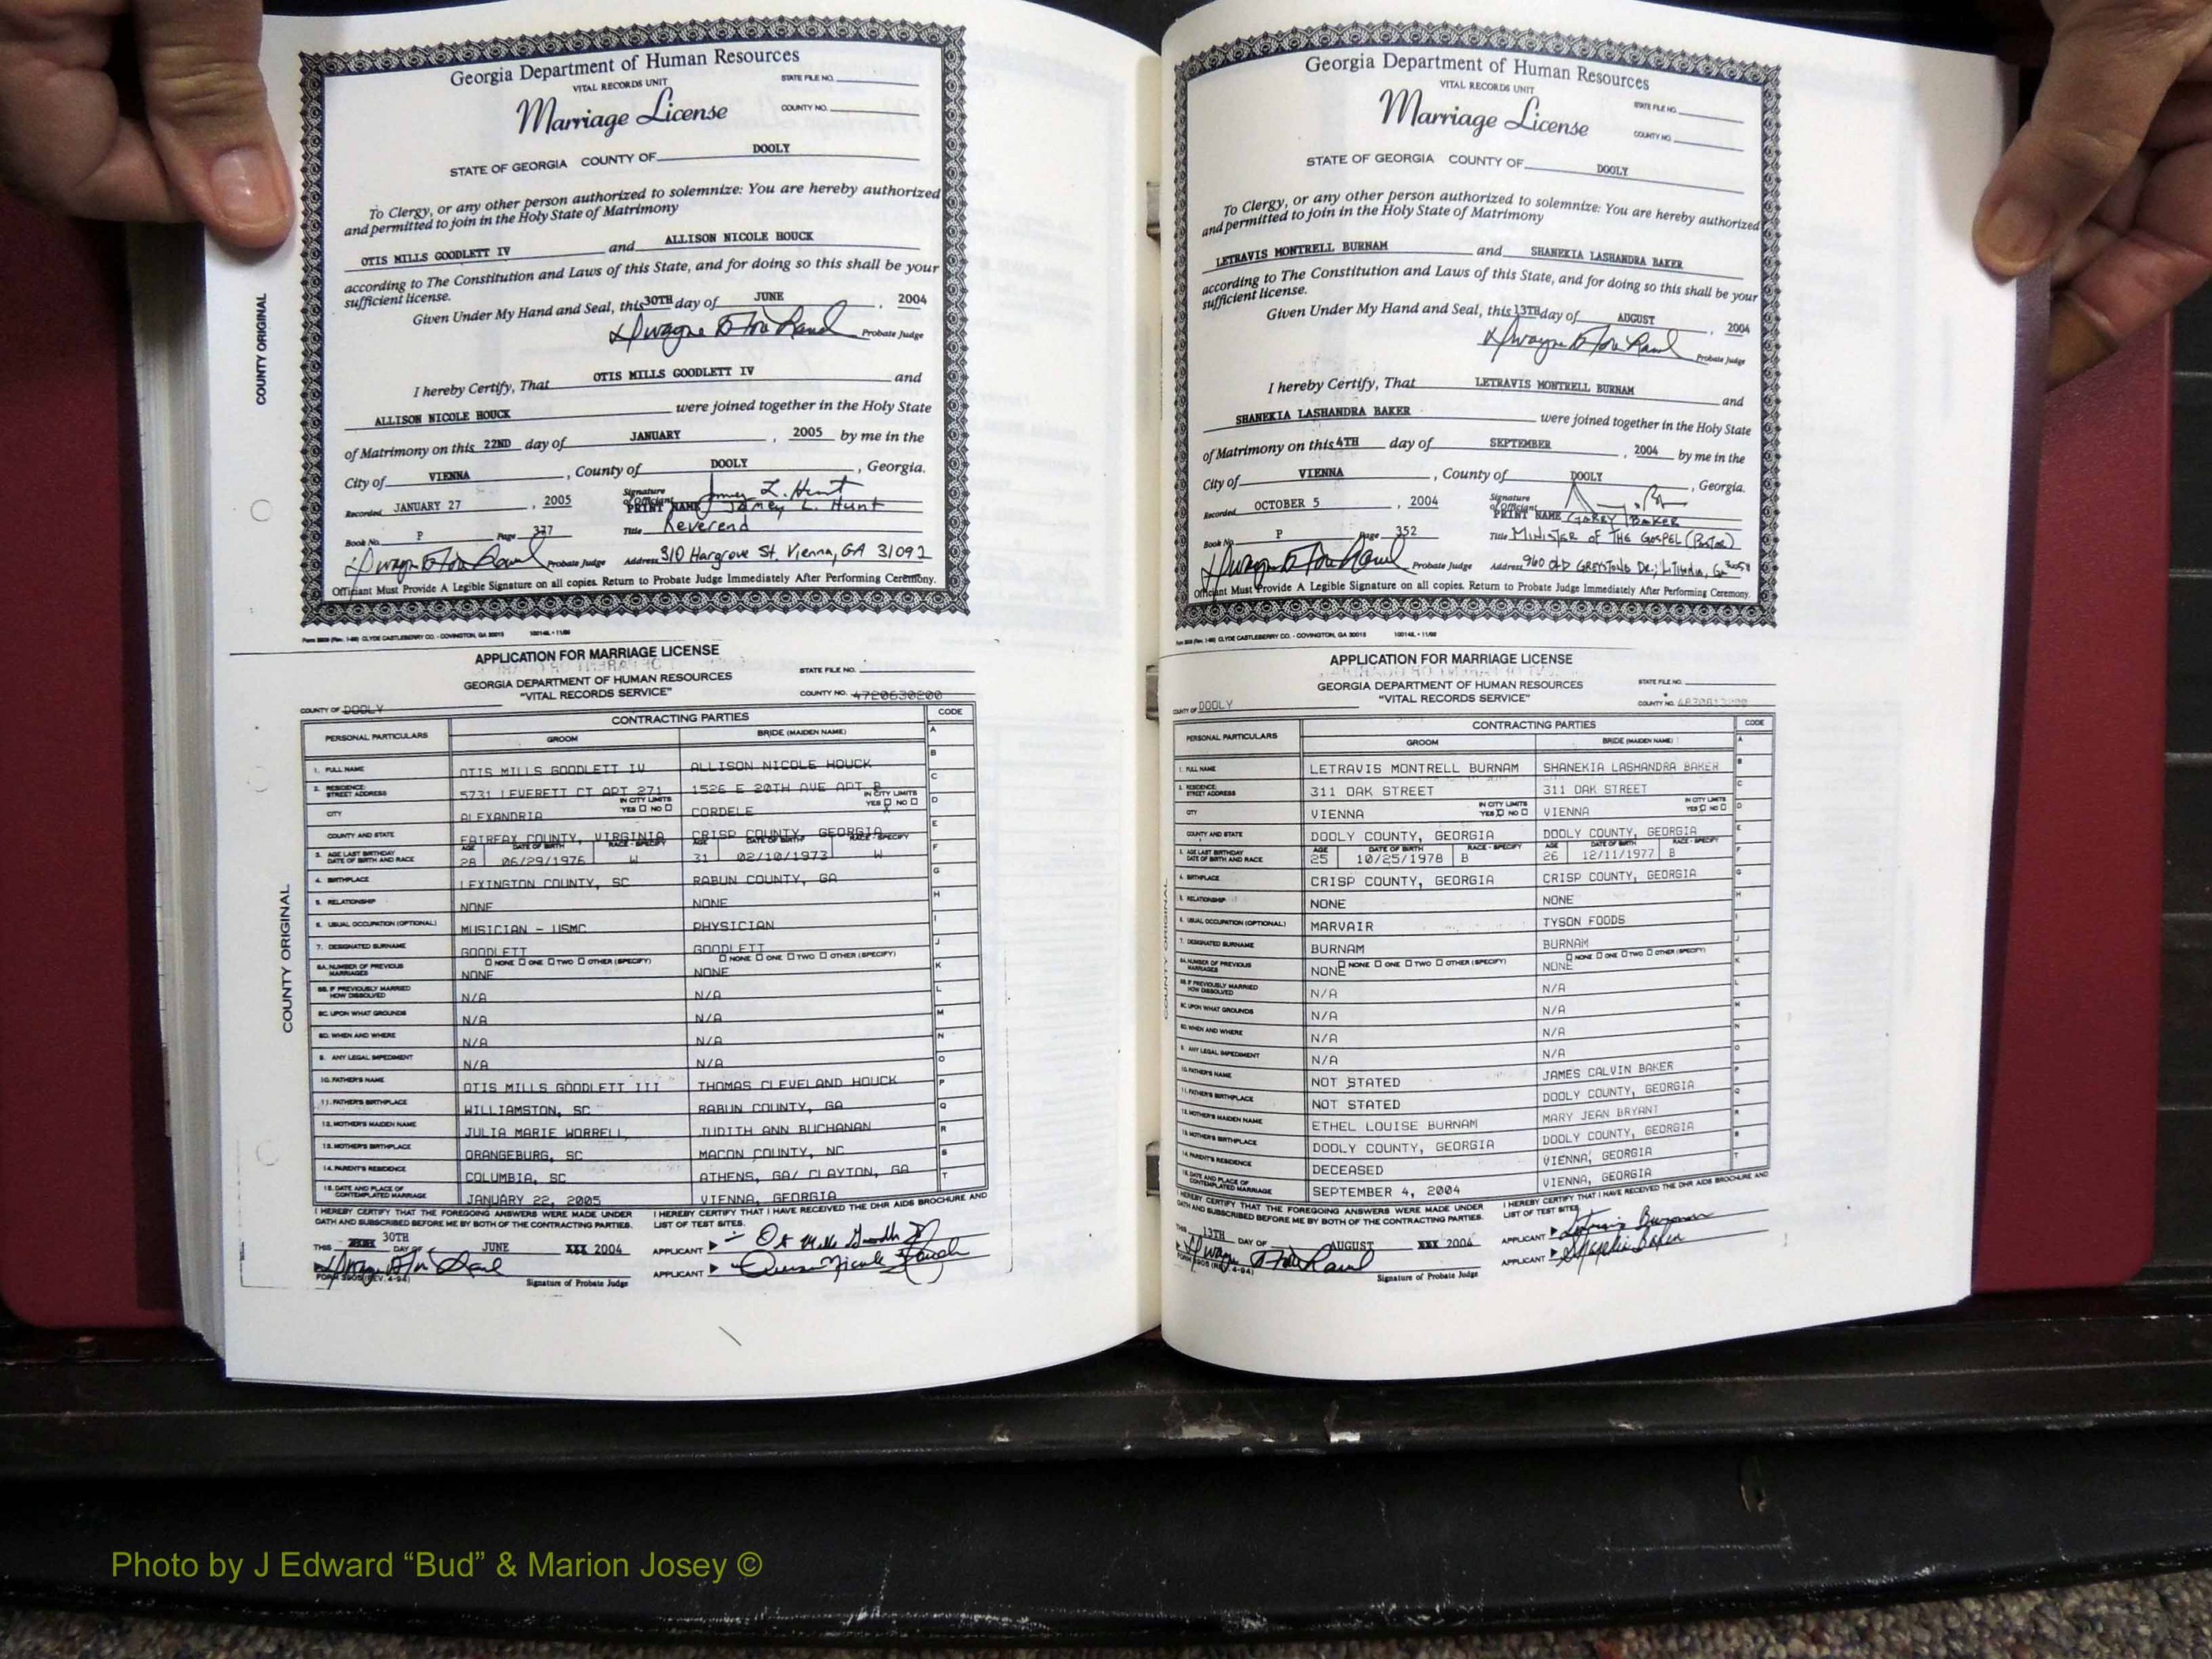 Georgia Department of Human Resources
VITAL RECORDS UNIT
STATE FILE NO.
Marriage License
COUNTY NO.
STATE OF GEORGIA COUNTY OF DOOLY
To Clergy, or any other person authorized to solemnize: You are hereby authorized
and permitted to join in the Holy State of Matrimony
OTIS MILLS GOODLETT IV and ALLISON NICOLE HOUCK
according to The Constitution and Laws of this State, and for doing so this shall be your
sufficient license.
Given Under My Hand and Seal, this 30TH day of JUNE, 2004
Probate Judge
I hereby Certify, That OTIS MILLS GOODLETT IV and
ALLISON NICOLE HOUCK were joined together in the Holy State
of Matrimony on this 22ND day of JANUARY, 2005 by me in the
City of VIENNA, County of DOOLY, Georgia.
Recorded JANUARY 27, 2005 Signature of Officiant James L. Hunt
PRINT NAME James L. Hunt
Book No. P Page 337 Title Reverend
Probate Judge Address 310 Hargrove St. Vienna, GA 31092
Officiant Must Provide A Legible Signature on all copies. Return to Probate Judge Immediately After Performing Ceremony.
COUNTY ORIGINAL
CLYDE CASTLEBERRY CO. - COVINGTON, GA 30015
APPLICATION FOR MARRIAGE LICENSE
GEORGIA DEPARTMENT OF HUMAN RESOURCES
"VITAL RECORDS SERVICE"
STATE FILE NO.
COUNTY NO. 4720630200
COUNTY OF DOOLY
CONTRACTING PARTIES CODE
PERSONAL PARTICULARS GROOM BRIDE (MAIDEN NAME)
1. FULL NAME OTIS MILLS GOODLETT IV ALLISON NICOLE HOUCK
2. RESIDENCE: STREET ADDRESS 5731 LEVERETT CT APT 271 1526 E 20TH AVE APT B
CITY ALEXANDRIA IN CITY LIMITS YES NO CORDELE IN CITY LIMITS YES NO
COUNTY AND STATE FAIRFAX COUNTY, VIRGINIA CRISP COUNTY, GEORGIA
3. AGE LAST BIRTHDAY DATE OF BIRTH AND RACE AGE 28 DATE OF BIRTH 06/29/1976 W AGE 31 DATE OF BIRTH 02/10/1973 RACE - SPECIFY W
4. BIRTHPLACE LEXINGTON COUNTY, SC RABUN COUNTY, GA
5. RELATIONSHIP NONE NONE
6. USUAL OCCUPATION (OPTIONAL) MUSICIAN - USMC PHYSICIAN
7. DESIGNATED SURNAME GOODLETT GOODLETT
8A. NUMBER OF PREVIOUS MARRIAGES NONE ONE TWO OTHER (SPECIFY) NONE NONE ONE TWO OTHER (SPECIFY) NONE
8B. IF PREVIOUSLY MARRIED HOW DISSOLVED N/A N/A
8C. UPON WHAT GROUNDS N/A N/A
8D. WHEN AND WHERE N/A N/A
9. ANY LEGAL IMPEDIMENT N/A N/A
10. FATHER'S NAME OTIS MILLS GOODLETT III THOMAS CLEVELAND HOUCK
11. FATHER'S BIRTHPLACE WILLIAMSTON, SC RABUN COUNTY, GA
12. MOTHER'S MAIDEN NAME JULIA MARIE WORRELL JUDITH ANN BUCHANAN
13. MOTHER'S BIRTHPLACE ORANGEBURG, SC MACON COUNTY, NC
14. PARENT'S RESIDENCE COLUMBIA, SC ATHENS, GA/ CLAYTON, GA
15. DATE AND PLACE OF CONTEMPLATED MARRIAGE JANUARY 22, 2005 VIENNA, GEORGIA
A B C D E F G H I J K L M N O P Q R S T
I HEREBY CERTIFY THAT THE FOREGOING ANSWERS WERE MADE UNDER
OATH AND SUBSCRIBED BEFORE ME BY BOTH OF THE CONTRACTING PARTIES.
I HEREBY CERTIFY THAT I HAVE RECEIVED THE DHR AIDS BROCHURE AND
LIST OF TEST SITES.
THIS 30TH DAY OF JUNE XXX 2004 APPLICANT
APPLICANT
FORM 3905 (REV. 4-94) Signature of Probate Judge
COUNTY ORIGINAL
Georgia Department of Human Resources
VITAL RECORDS UNIT
STATE FILE NO.
Marriage License
COUNTY NO.
STATE OF GEORGIA COUNTY OF DOOLY
To Clergy, or any other person authorized to solemnize: You are hereby authorized
and permitted to join in the Holy State of Matrimony
LETRAVIS MONTRELL BURNAM and SHANEKIA LASHANDRA BAKER
according to The Constitution and Laws of this State, and for doing so this shall be your
sufficient license.
Given Under My Hand and Seal, this 13TH day of AUGUST, 2004
Probate Judge
I hereby Certify, That LETRAVIS MONTRELL BURNAM and
SHANEKIA LASHANDRA BAKER were joined together in the Holy State
of Matrimony on this 4TH day of SEPTEMBER, 2004 by me in the
City of VIENNA, County of DOOLY, Georgia.
Recorded OCTOBER 5, 2004 Signature of Officiant
PRINT NAME GARRY BAKER
Book No. P Page 352 Title MINISTER OF THE GOSPEL (Pastor)
Probate Judge Address 960 OLD GREYSTONE DR.; Lithonia, Ga 30058
Officiant Must Provide A Legible Signature on all copies. Return to Probate Judge Immediately After Performing Ceremony.
CLYDE CASTLEBERRY CO. - COVINGTON, GA 30015
APPLICATION FOR MARRIAGE LICENSE
GEORGIA DEPARTMENT OF HUMAN RESOURCES
"VITAL RECORDS SERVICE"
STATE FILE NO.
COUNTY NO.
COUNTY OF DOOLY
CONTRACTING PARTIES CODE
PERSONAL PARTICULARS GROOM BRIDE (MAIDEN NAME)
1. FULL NAME LETRAVIS MONTRELL BURNAM SHANEKIA LASHANDRA BAKER
2. RESIDENCE: STREET ADDRESS 311 OAK STREET 311 OAK STREET
CITY VIENNA IN CITY LIMITS YES NO VIENNA IN CITY LIMITS YES NO
COUNTY AND STATE DOOLY COUNTY, GEORGIA DOOLY COUNTY, GEORGIA
3. AGE LAST BIRTHDAY DATE OF BIRTH AND RACE AGE 25 DATE OF BIRTH 10/25/1978 RACE - SPECIFY B AGE 26 DATE OF BIRTH 12/11/1977 RACE - SPECIFY B
4. BIRTHPLACE CRISP COUNTY, GEORGIA CRISP COUNTY, GEORGIA
5. RELATIONSHIP NONE NONE
6. USUAL OCCUPATION (OPTIONAL) MARVAIR TYSON FOODS
7. DESIGNATED SURNAME BURNAM BURNAM
8A. NUMBER OF PREVIOUS MARRIAGES NONE NONE ONE TWO OTHER (SPECIFY) NONE NONE ONE TWO OTHER (SPECIFY)
8B. IF PREVIOUSLY MARRIED HOW DISSOLVED N/A N/A
8C. UPON WHAT GROUNDS N/A N/A
8D. WHEN AND WHERE N/A N/A
9. ANY LEGAL IMPEDIMENT N/A N/A
10. FATHER'S NAME NOT STATED JAMES CALVIN BAKER
11. FATHER'S BIRTHPLACE NOT STATED DOOLY COUNTY, GEORGIA
12. MOTHER'S MAIDEN NAME ETHEL LOUISE BURNAM MARY JEAN BRYANT
13. MOTHER'S BIRTHPLACE DOOLY COUNTY, GEORGIA DOOLY COUNTY, GEORGIA
14. PARENT'S RESIDENCE DECEASED VIENNA, GEORGIA
15. DATE AND PLACE OF CONTEMPLATED MARRIAGE SEPTEMBER 4, 2004 VIENNA, GEORGIA
I HEREBY CERTIFY THAT THE FOREGOING ANSWERS WERE MADE UNDER
OATH AND SUBSCRIBED BEFORE ME BY BOTH OF THE CONTRACTING PARTIES.
I HEREBY CERTIFY THAT I HAVE RECEIVED THE DHR AIDS BROCHURE AND
LIST OF TEST SITES.
THIS 13TH DAY OF AUGUST XXX 2004 APPLICANT
APPLICANT
FORM 3905 (REV. 4-94) Signature of Probate Judge
COUNTY ORIGINAL
Photo by J Edward “Bud” & Marion Josey ©